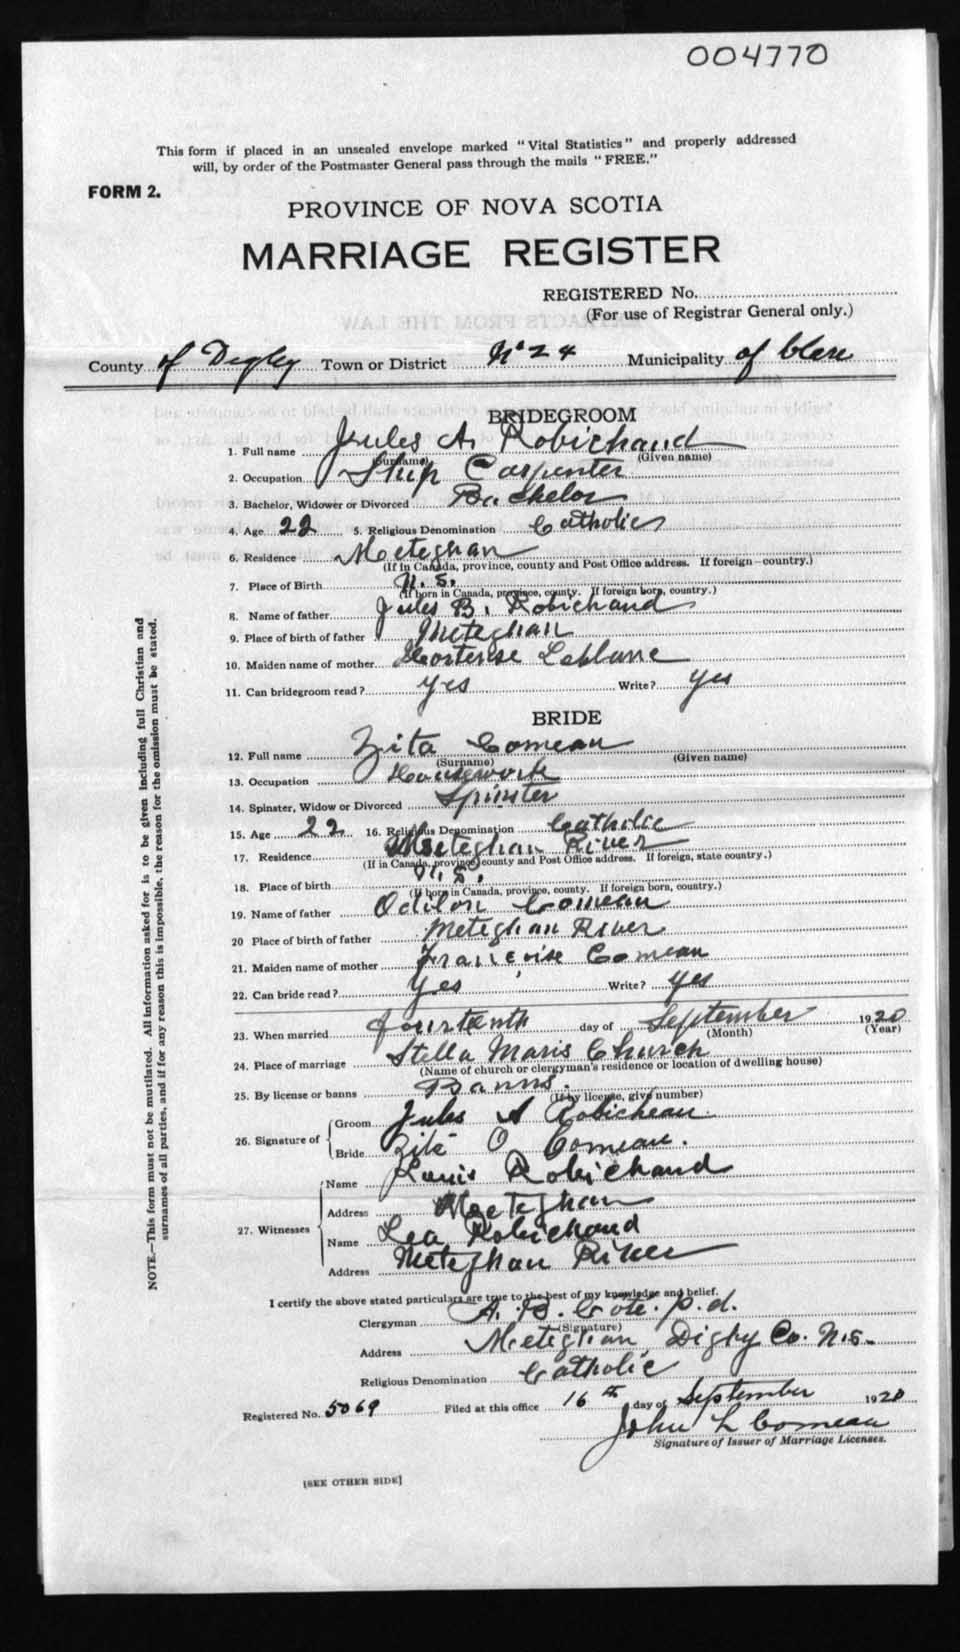 004770
This form if placed in an unsealed envelope marked "Vital Statistics" and properly addressed
will, by order of the Postmaster General pass through the mails "FREE."
FORM 2.
PROVINCE OF NOVA SCOTIA
MARRIAGE REGISTER
REGISTERED No.
(For use of Registrar General only.)
County of Digby Town or District No 24 Municipality of Clare
BRIDEGROOM
1. Full name Jules A. Robichaud
(Surname) (Given name)
2. Occupation Ship Carpenter
3. Bachelor, Widower or Divorced Bachelor
4. Age 22 5. Religious Denomination Catholic
6. Residence Meteghan
(If in Canada, province, county and Post Office address. If foreign—country.)
7. Place of Birth N.S.
(If born in Canada, province, county. If foreign born, country.)
8. Name of father Jules B. Robichaud
9. Place of birth of father Meteghan
10. Maiden name of mother Hortense Leblanc
11. Can bridegroom read? yes Write? yes
BRIDE
12. Full name Zita Comeau
(Surname) (Given name)
13. Occupation Housework
14. Spinster, Widow or Divorced Spinster
15. Age 22 16. Religious Denomination Catholic
17. Residence Meteghan River
(If in Canada, province, county and Post Office address. If foreign, state country.)
18. Place of birth N.S.
(If born in Canada, province, county. If foreign born, country.)
19. Name of father Odilon Comeau
20 Place of birth of father Meteghan River
21. Maiden name of mother Francoise Comeau
22. Can bride read? yes Write? yes
23. When married fourteenth day of September 1920
(Month) (Year)
24. Place of marriage Stella Maris Church
(Name of church or clergyman's residence or location of dwelling house)
25. By license or banns Banns.
(If by license, give number)
26. Signature of Groom Jules A Robicheau.
Bride Zité O Comeau.
27. Witnesses Name Louis Robichaud
Address Meteghan
Name Lea Robichaud
Address Meteghan River
I certify the above stated particulars are true to the best of my knowledge and belief.
Clergyman A. B. Cote. p.d.
(Signature)
Address Meteghan Digby Co. N.S.
Religious Denomination Catholic
Registered No. 5069 Filed at this office 16th day of September 1920
John L Comeau
Signature of Issuer of Marriage Licenses.
[SEE OTHER SIDE]
NOTE.—This form must not be mutilated. All information asked for is to be given including full Christian and
surnames of all parties, and if for any reason this is impossible, the reason for the omission must be stated.